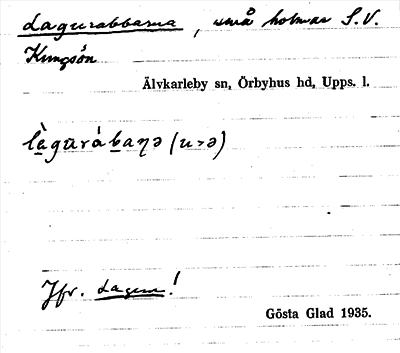 Lagurabbarna, små holmar S.V.
Kungsön
Älvkarleby sn, Örbyhus hd, Upps. l.
lè̱gūrábaŋə (u>ə)
Jfr. Lagun!
Gösta Glad 1935.